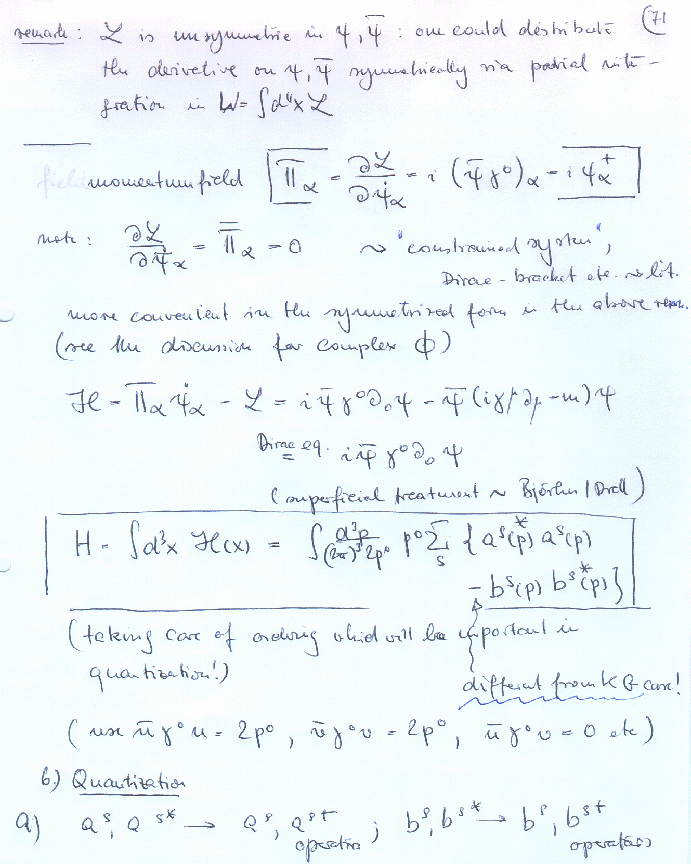 (71
remark: ℒ is unsymmetric in ψ, ψ̄ : one could distribute
the derivative on ψ, ψ̄ symmetrically via partial inte-
gration in W = ∫d⁴x ℒ
field momentum field Π_α = ∂ℒ/∂ψ̇_α = i (ψ̄ γ⁰)_α = i ψ_α⁺
note: ∂ℒ/∂ψ̄̇_α = Π̄_α = 0 ~ "constrained system",
Dirac-bracket etc. ~ lit.
more convenient in the symmetrized form in the above rem.
(see the discussion for complex ϕ)
ℋ = Π_α ψ̇_α - ℒ = i ψ̄ γ⁰∂₀ψ - ψ̄ (iγ^μ ∂_μ - m) ψ
Dirac eq. = i ψ̄ γ⁰∂₀ ψ
(superficial treatment ~ Björken / Drell)
H = ∫d³x ℋ(x) = ∫ d³p/(2π)³2p⁰ p⁰ Σ_s { a^s*(p) a^s(p)
- b^s(p) b^s*(p) }
(taking care of ordering which will be important in
quantization!)
different from KG case!
(use ū γ⁰ u = 2p⁰, v̄ γ⁰ v = 2p⁰, ū γ⁰ v = 0 etc)
b.) Quantization
a) a^s, a^s* → a^s, a^s+ ; b^s, b^s* → b^s, b^s+
operators operators